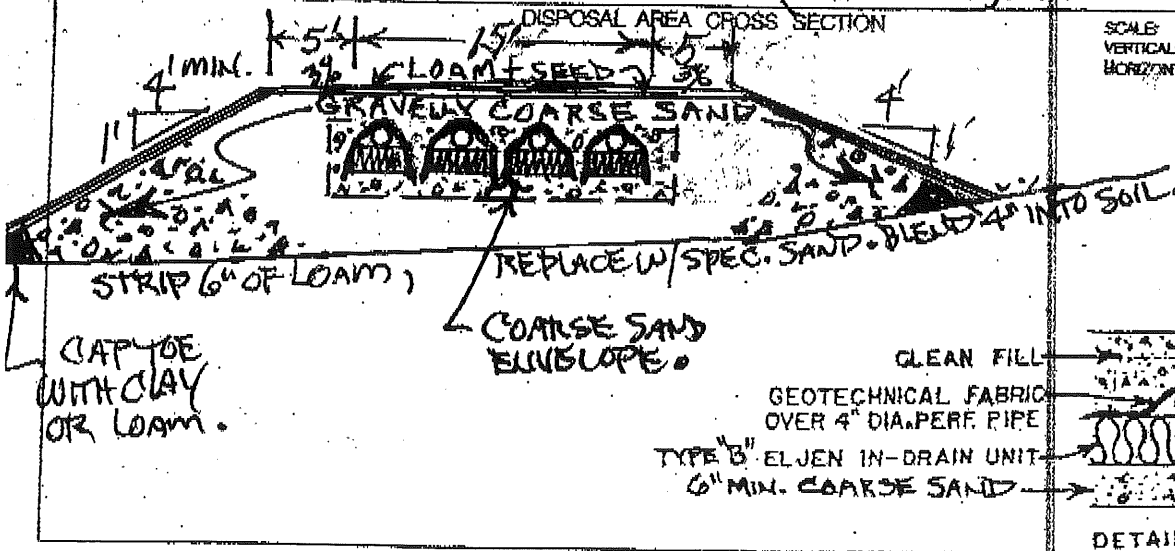 DISPOSAL AREA CROSS SECTION
SCALE:
VERTICAL
HORIZON
5' 15' 5'
4' MIN.
3%
LOAM + SEED
3%
1'
GRAVELLY COARSE SAND
4'
1'
STRIP 6" OF LOAM,
REPLACE W/SPEC. SAND. BLEND 4" INTO SOIL.
COARSE SAND
ENVELOPE.
CAP TOE
WITH CLAY
OR LOAM.
CLEAN FILL
GEOTECHNICAL FABRIC
OVER 4" DIA. PERF. PIPE
TYPE "B" ELJEN IN-DRAIN UNIT
6" MIN. COARSE SAND
DETAI